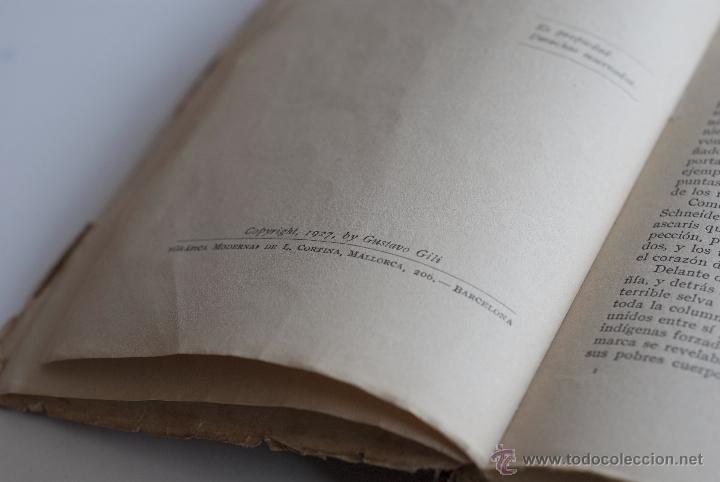 Es propiedad.
Derechos reservados.
Copyright, 1927, by Gustavo Gili
Modernas de L. Cortina, Mallorca, 206.—Barcelona
von
ñado
porta
ejemp
puntas
de los
Como
Schneide
ascaris qu
pección, p
dos, y los
el corazón d
Delante d
ñía, y detrás
terrible selva
toda la column
unidos entre sí
indígenas forzad
marca se revelab
sus pobres cuerpo
www.todocoleccion.net